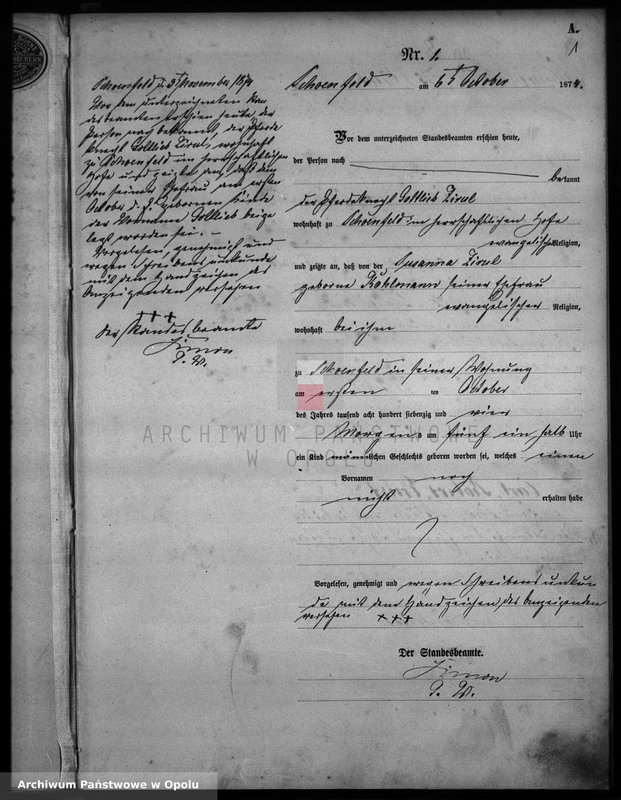 A.
1
Nr. 1.
Schoenfeld am 6t October 1874.
Vor dem unterzeichneten Standesbeamten erschien heute,
der Person nach
bekannt
der Pferdeknecht Gottlieb
wohnhaft zu Schoenfeld im herrschaftlichen Hofe
evangelischer Religion,
und zeigte an, daß von der Susanna
geborne Kuhlmann seiner Ehefrau
evangelischer Religion,
wohnhaft bei ihm
zu Schoenfeld in seiner Wohnung
am ersten ten October
des Jahres tausend acht hundert siebenzig und vier
Morgens um fünf ein halb Uhr
ein Kind männlichen Geschlechts geboren worden sei, welches einen
Vornamen noch
nicht erhalten habe
Vorgelesen, genehmigt und wegen Schreibensunkun
de mit dem Handzeichen des Anzeigenden
versehen +++
Der Standesbeamte.
Simon
Schoenfeld d. November 1874
Vor dem unterzeichneten Stan
desbeamten erschien heute der
Person nach bekannt, der Pferde
knecht Gottlieb wohnhaft
zu Schoenfeld im herrschaftlichen
Hofe und zeigte an, daß dem
von seiner Ehefrau am ersten
October d. J. gebornen Kinde
der Vorname Gottlieb beige
legt worden sei. –
Vorgelesen, genehmigt und
wegen Schreibensunkunde
mit dem Handzeichen des
Anzeigenden versehen
+++
Der Standesbeamte
Simon
ARCHIWUM PAŃSTWOWE
W OPOLU
Archiwum Państwowe w Opolu